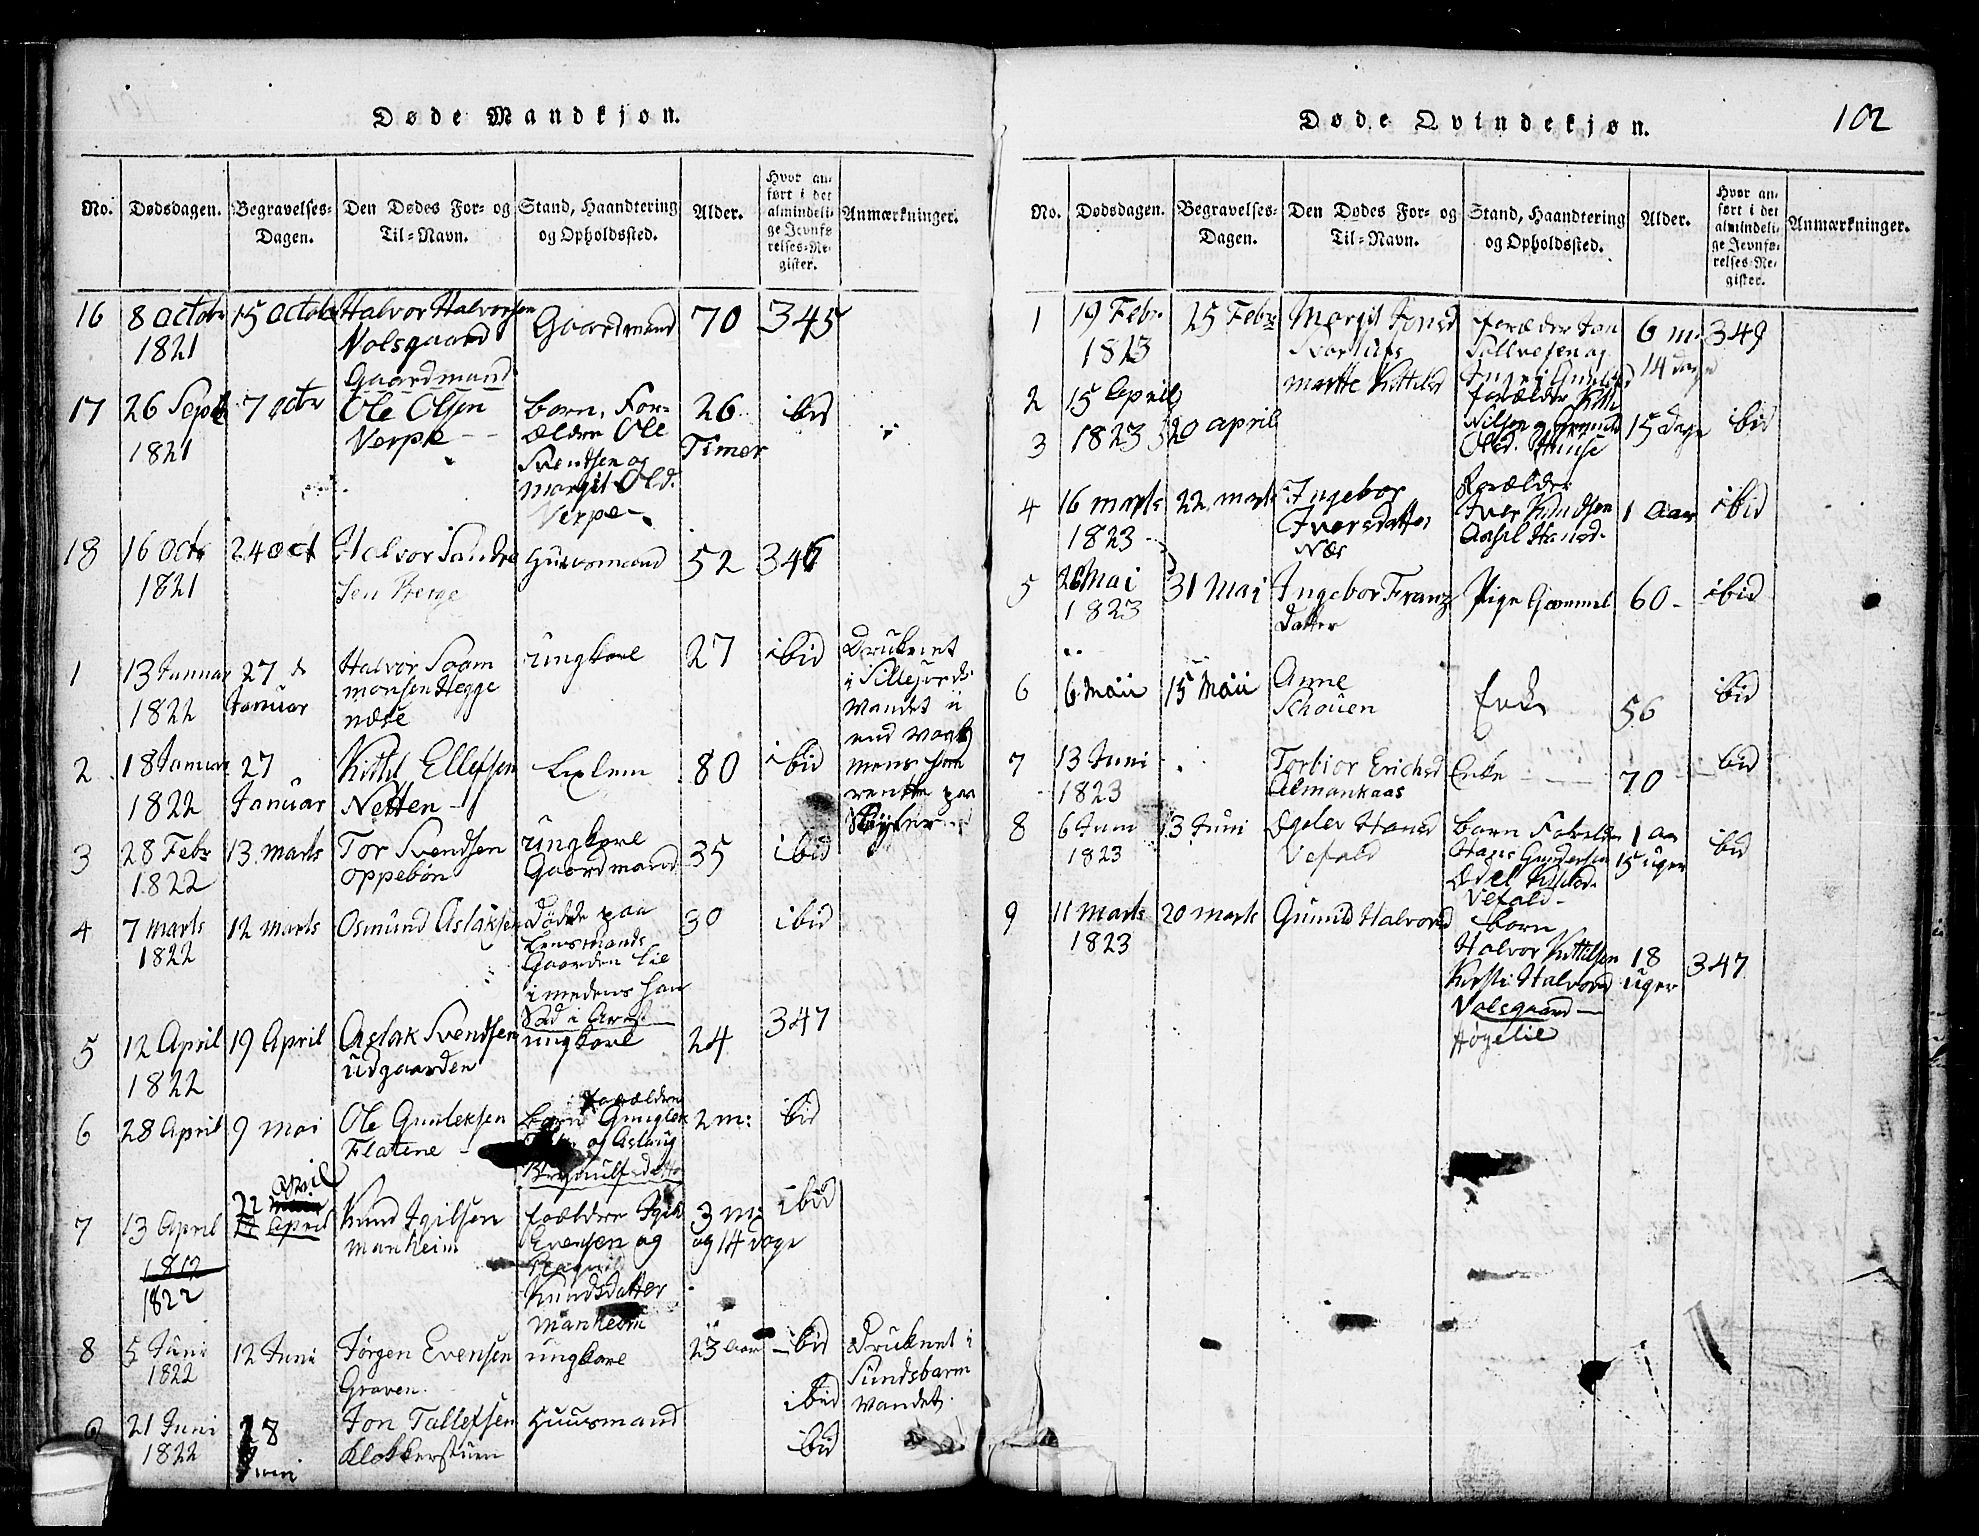 Døde Mandkjøn.
No. Dødsdagen. Begravelses-Dagen. Den Dødes For- og Til-Navn. Stand, Haandtering og Opholdssted. Alder. Hvor anført i det almindelige Jevnførelses-Register. Anmærkninger.
16 8 octobr 15 octobr Halvor Halvorsen Gaardmand 70 345
1821 Volsgaard
Gaardmand
17 26 Septb 7 octr Ole Olsen barn, For- 26 ibid
1821 Verpe - - ældre Ole Timer
Svendsen og
Margit Olsd.
Verpe -
18 16 octr 24 oct Halvor Sandre Huusmand 52 346
1821 sen Berge
1 13 Januar 27 Halvor Saam ungkarl 27 ibid Druknet
1822 Januar monsen Hegge i Sillejords
næse Vandet
2 18 Januar 27 Kittil Ellefsen Exlem 80 ibid mens han
1822 Januar Netten - rente paa
3 28 Febr 13 marts Tor Svendsen ungkarl 35 ibid
1822 oppebøn Gaardmand
4 7 marts 12 marts Osmund Aslaksen Døde paa 30 ibid
1822 Lensmands
Gaarden Lie
imedens han
Sad i Arest
5 12 April 19 April Aslak Svendsen ungkarl 24 347
1822 Udgaarden
6 28 April 9 mai Ole Gunleksen barn Forældre 2 m: ibid
Flatene - og Aslaug
7 13 April 22 April Knud Igilsen forældre 3 m: ibid
1812 April Manheim Evensen og og 14 dage
1822 Knudsdatter
Manheim
8 5 Juni 12 Juni Jørgen Evensen ungkarl 23 aar ibid Druknet i
1822 Graven. Sundsbarm
ibid Vandet.
9 21 Juni 28 Jon Tallefsen Huusmand ibid
1822 Juni Klokkerstuen
Døde Qvindekjøn. 102
No. Dødsdagen. Begravelses-Dagen. Den Dødes For- og Til-Navn. Stand, Haandtering og Opholdssted. Alder. Hvor anført i det almindelige Jevnførelses-Register. Anmærkninger.
1 19 Febr 25 Febr Margit Jonsd forælder Jon 6 m: 349
1823 og 14 dage
2 15 April Martte Kittilsd forælder
3 1823 20 april Nilsen og 15 dage ibid
Olsd.
Forælder
4 16 marts 22 marts Ingebor Iver Knudsen 1 aar ibid
1823 Iversdatter Aasil Hansd.
Næs
5 26 Mai 31 Mai Ingebor Franz Pige Gammel 60 - ibid
1823 datter
6 6 Maii 15 Maii Anne Enke 56 ibid
Schouen
7 13 Juni Torbior Erichsd Enke - 70 - ibid
1823 Almankaas
8 6 Juni 13 Juni Hansd barn Forældre 1 aar ibid
1823 Vefald Hans Gundersen 15 uger
Kittilsd.
Vefald -
9 11 Marts 20 marts Gunild Halvorsd barn
1823 Halvor Kittilsen 18 347
Kirsti Halvorsd uger
Volsgaard -
Høgelie